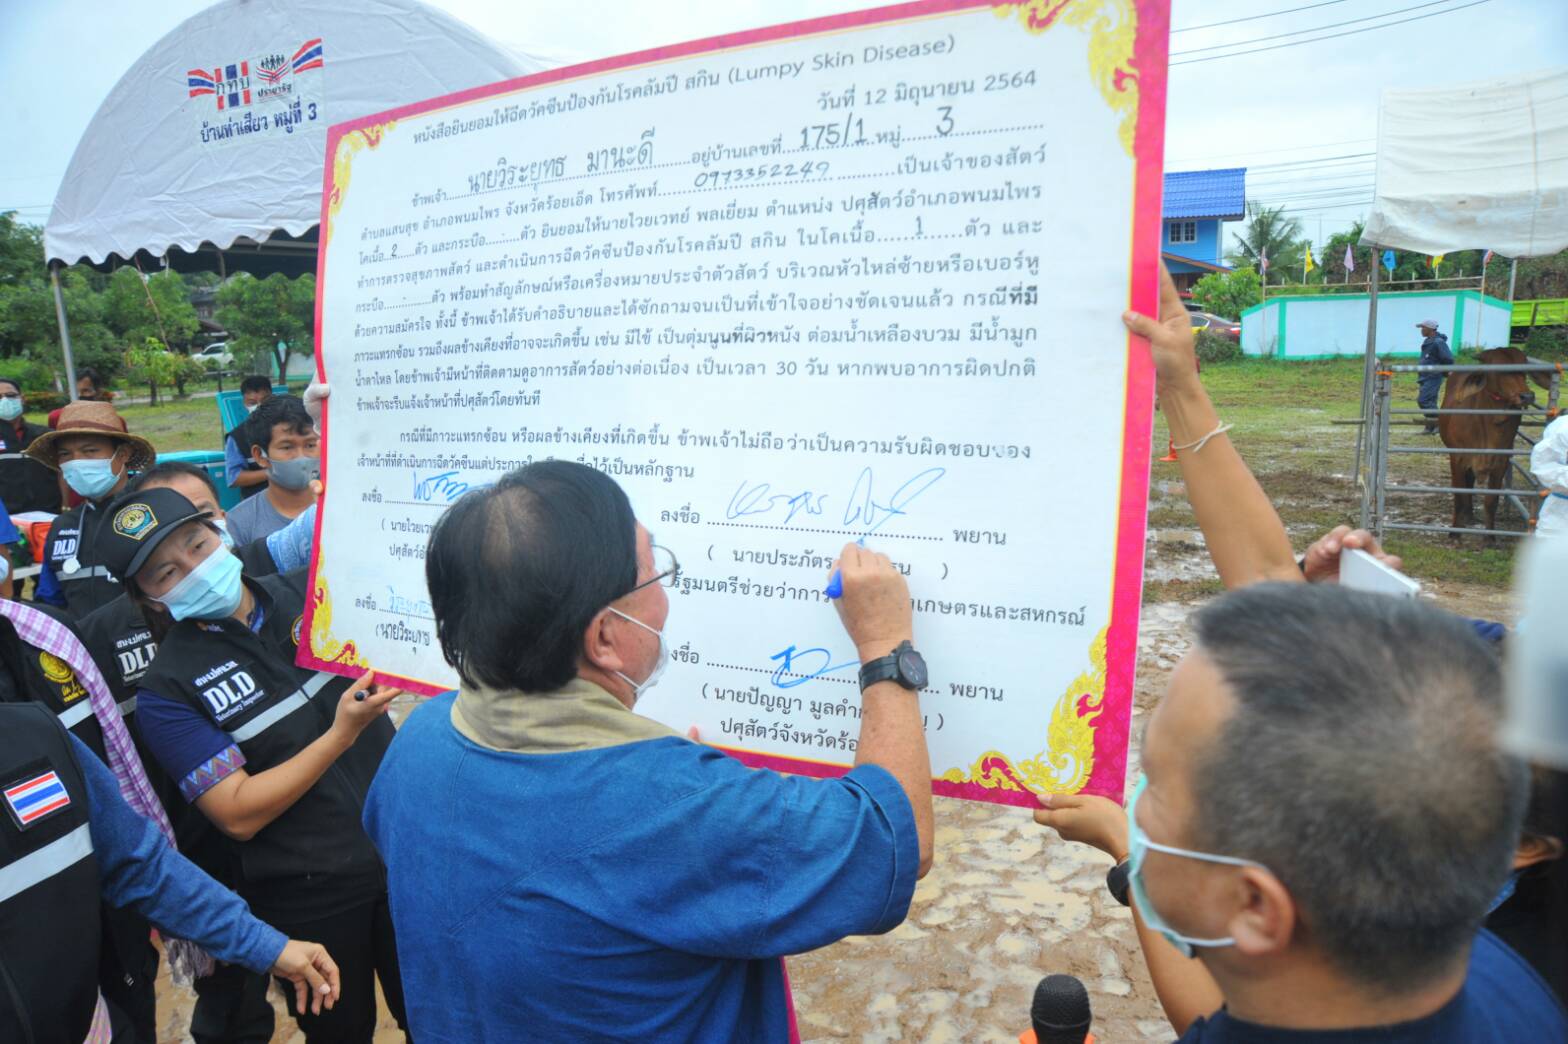 กทบ
ประชารัฐ
บ้านท่าเสียว หมู่ที่ 3
หนังสือยินยอมให้ฉีดวัคซีนป้องกันโรคลัมปี สกิน (Lumpy Skin Disease)
วันที่ 12 มิถุนายน 2564
ข้าพเจ้า นายวิระยุทธ มานะดี อยู่บ้านเลขที่ 175/1 หมู่ 3
ตำบลแสนสุข อำเภอพนมไพร จังหวัดร้อยเอ็ด โทรศัพท์ 0973352249 เป็นเจ้าของสัตว์
โคเนื้อ 2 ตัว และกระบือ ตัว ยินยอมให้นายไวยเวทย์ พลเยี่ยม ตำแหน่ง ปศุสัตว์อำเภอพนมไพร
ทำการตรวจสุขภาพสัตว์ และดำเนินการฉีดวัคซีนป้องกันโรคลัมปี สกิน ในโคเนื้อ 1 ตัว และ
กระบือ ตัว พร้อมทำสัญลักษณ์หรือเครื่องหมายประจำตัวสัตว์ บริเวณหัวไหล่ซ้ายหรือเบอร์หู
ด้วยความสมัครใจ ทั้งนี้ ข้าพเจ้าได้รับคำอธิบายและได้ซักถามจนเป็นที่เข้าใจอย่างชัดเจนแล้ว กรณีที่มี
ภาวะแทรกซ้อน รวมถึงผลข้างเคียงที่อาจจะเกิดขึ้น เช่น มีไข้ เป็นตุ่มนูนที่ผิวหนัง ต่อมน้ำเหลืองบวม มีน้ำมูก
น้ำตาไหล โดยข้าพเจ้ามีหน้าที่ติดตามดูอาการสัตว์อย่างต่อเนื่อง เป็นเวลา 30 วัน หากพบอาการผิดปกติ
ข้าพเจ้าจะรีบแจ้งเจ้าหน้าที่ปศุสัตว์โดยทันที
กรณีที่มีภาวะแทรกซ้อน หรือผลข้างเคียงที่เกิดขึ้น ข้าพเจ้าไม่ถือว่าเป็นความรับผิดชอบของ
เจ้าหน้าที่ที่ดำเนินการฉีดวัคซีนแต่ประการใด ไว้เป็นหลักฐาน
ลงชื่อ
ลงชื่อ พยาน
( นายไวยเว
( นายประภัตร )
ปศุสัตว์อ
รัฐมนตรีช่วยว่าการ เกษตรและสหกรณ์
ลงชื่อ
ลงชื่อ พยาน
(นายวิระยุทธ
( นายปัญญา มูลคำ )
ปศุสัตว์จังหวัดร้อ
DLD
DLD
DLD